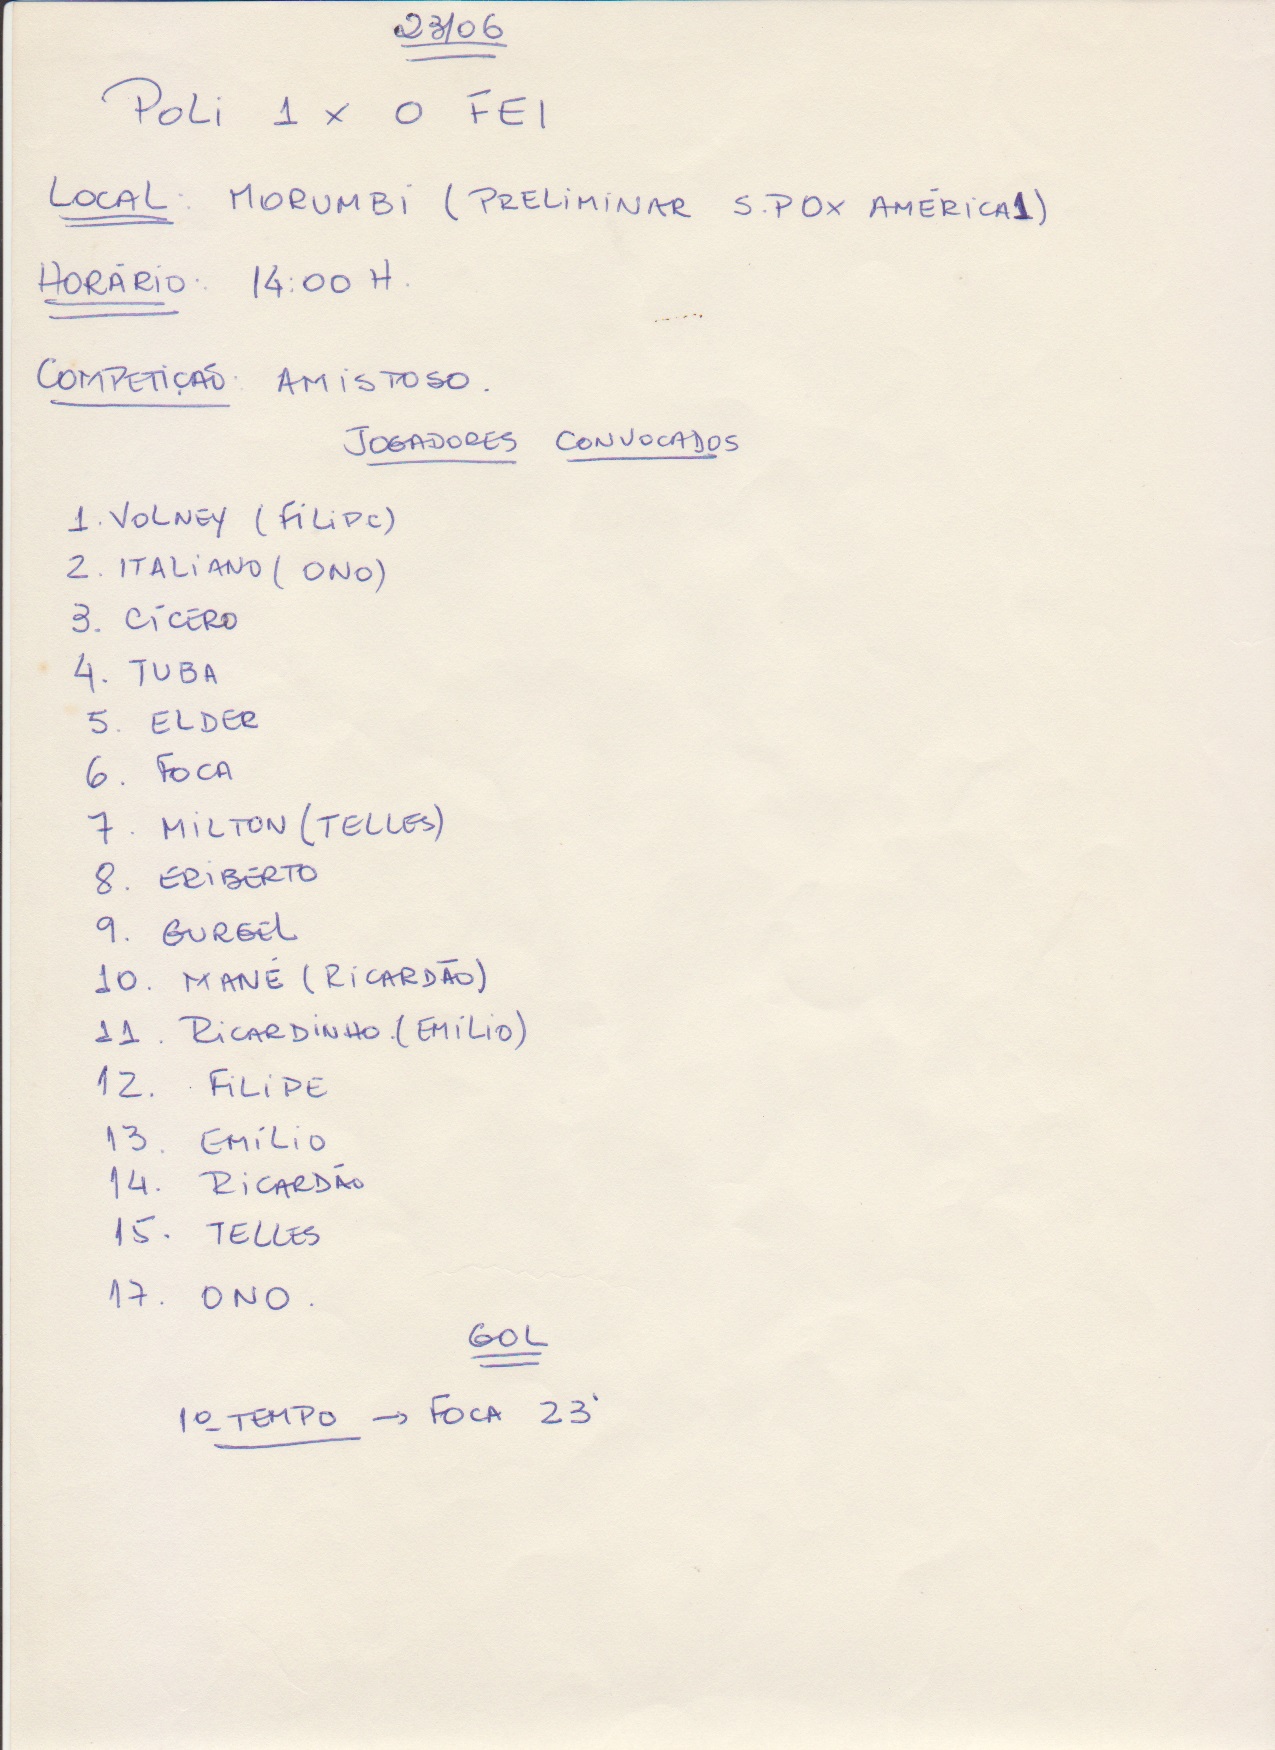 23/06
POLI 1 x 0 FEI
LOCAL: MORUMBI (PRELIMINAR S.PO X AMÉRICA1)
HORÁRIO: 14:00 H.
COMPETIÇÃO: AMISTOSO.
JOGADORES CONVOCADOS
1. VOLNEY (FILIPE)
2. ITALIANO (ONO)
3. CÍCERO
4. TUBA
5. ELDER
6. FOCA
7. MILTON (TELLES)
8. ERIBERTO
9. GURGEL
10. MANÉ (RICARDÃO)
11. RICARDINHO. (EMÍLIO)
12. FILIPE
13. EMÍLIO
14. RICARDÃO
15. TELLES
17. ONO.
GOL
1º TEMPO → FOCA 23'